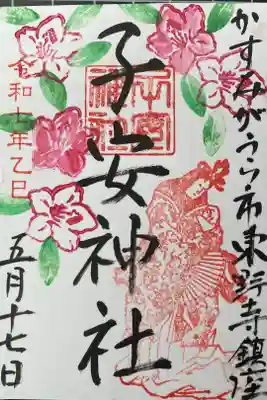 かすみがうら市東野寺鎮座
子安神社
令和七年乙巳
五月十七日